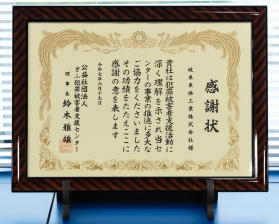 感謝状
岐阜車体工業株式会社 様
貴社は犯罪被害者支援活動に
深く理解を示され当セ
ンターの事業の推進に多大な
ご協力をくださいました
その功績をたたえここに
感謝の意を表します
令和七年六月十九日
公益社団法人
ぎふ犯罪被害者支援センター
理事長 鈴木雅雄